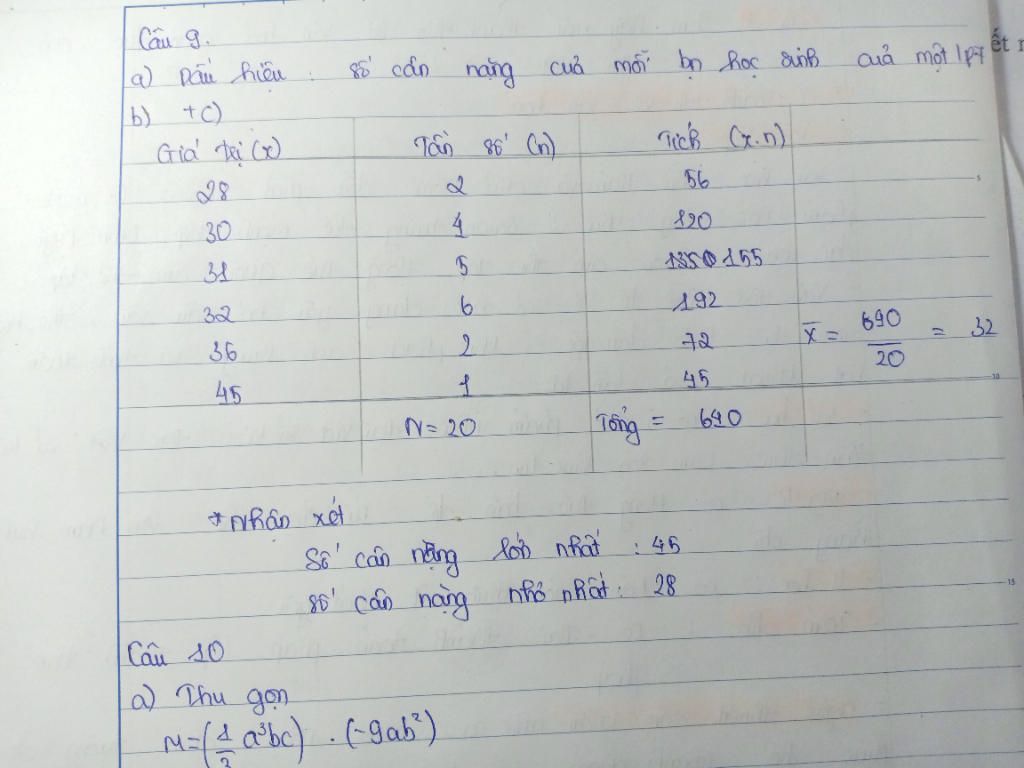 Câu 9.
a) Dấu hiệu : số cân nặng của mỗi bạn học sinh của một lớp 7
b) + c)
Giá trị (x) Tần số (n) Tích (x.n)
28 2 56
30 4 120
31 5 155
32 6 192
36 2 72
45 1 45
x̄ = 690/20 = 32
N = 20 Tổng = 690
* Nhận xét
Số cân nặng lớn nhất : 45
Số cân nặng nhỏ nhất : 28
Câu 10
a) Thu gọn
M = (1/3 a³bc) . (-9ab²)